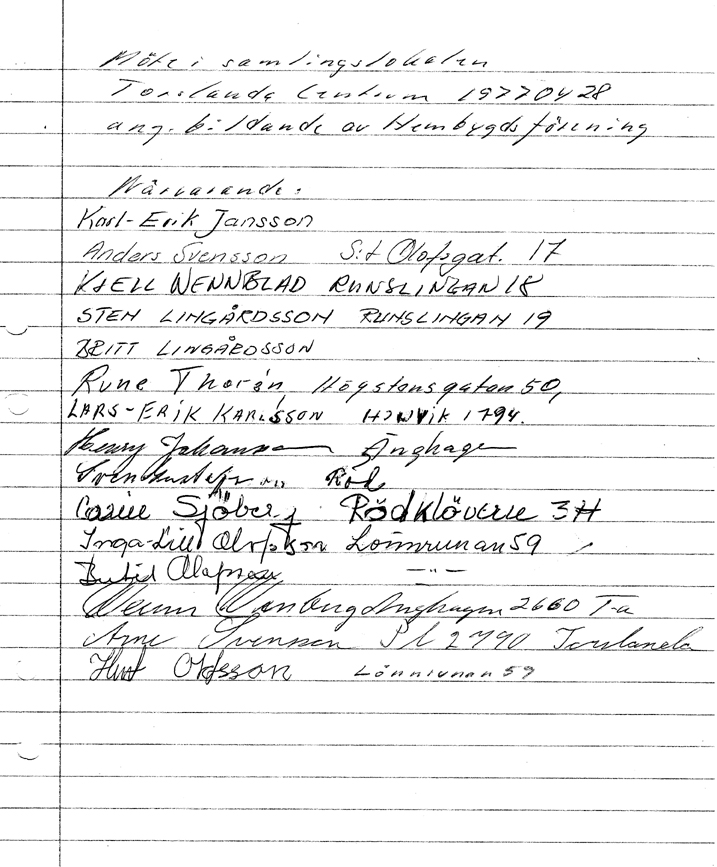 Möte i samlingslokalen
Torslanda Centrum 19770428
ang. bildande av Hembygdsförening
Närvarande:
Karl-Erik Jansson
Anders Svensson S:t Olofsgat. 17
KJELL WENNBLAD RUNSLINGAN 18
STEN LINGÅRDSSON RUNSLINGAN 19
BRITT LINGÅRDSSON
Rune Thorén Högstensgatan 50,
LARS-ERIK KARLSSON HÄLLVIK 1794.
Henry Johansson Änghagen
Sven Gustafsson Röd
Carine Sjöberg Rödklövern 3H
Inga-Lill Olofsson Lönnrunan 59
Olofsson —"—
Wennberg Änghagen 2660 T-a
Arne Svensson Pl 2790 Torslanda
Olofsson Lönnrunan 59